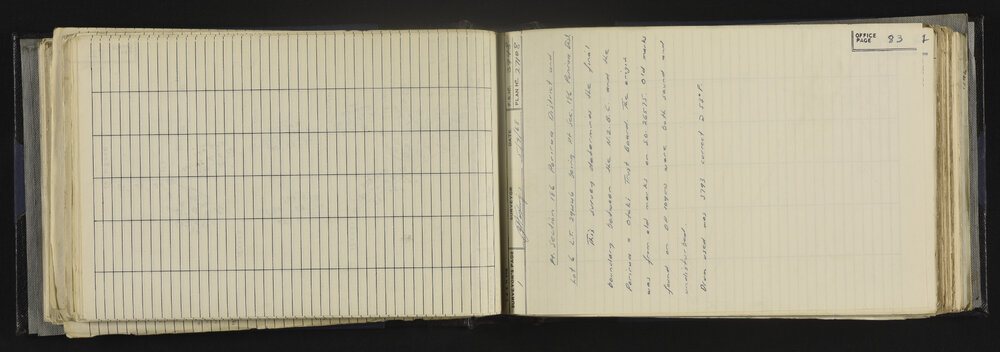 OFFICE PAGE 83 1
SURVEYOR'S PAGE 1
SURVEYOR
DATE
PLAN NO. 27908
Pt. Section 156 Porirua District and
Lot 6 L.T. being Pt Sec. 156 Porirua Dist.
This survey determines the final
boundary between the N.Z.B.C. and the
Porirua & Otaki Trust Board. The origin
was from old marks on S.O. 26535. Old marks
found on DP were both sound and
undisturbed.
Drum used was 3793 correct @ 58°F.